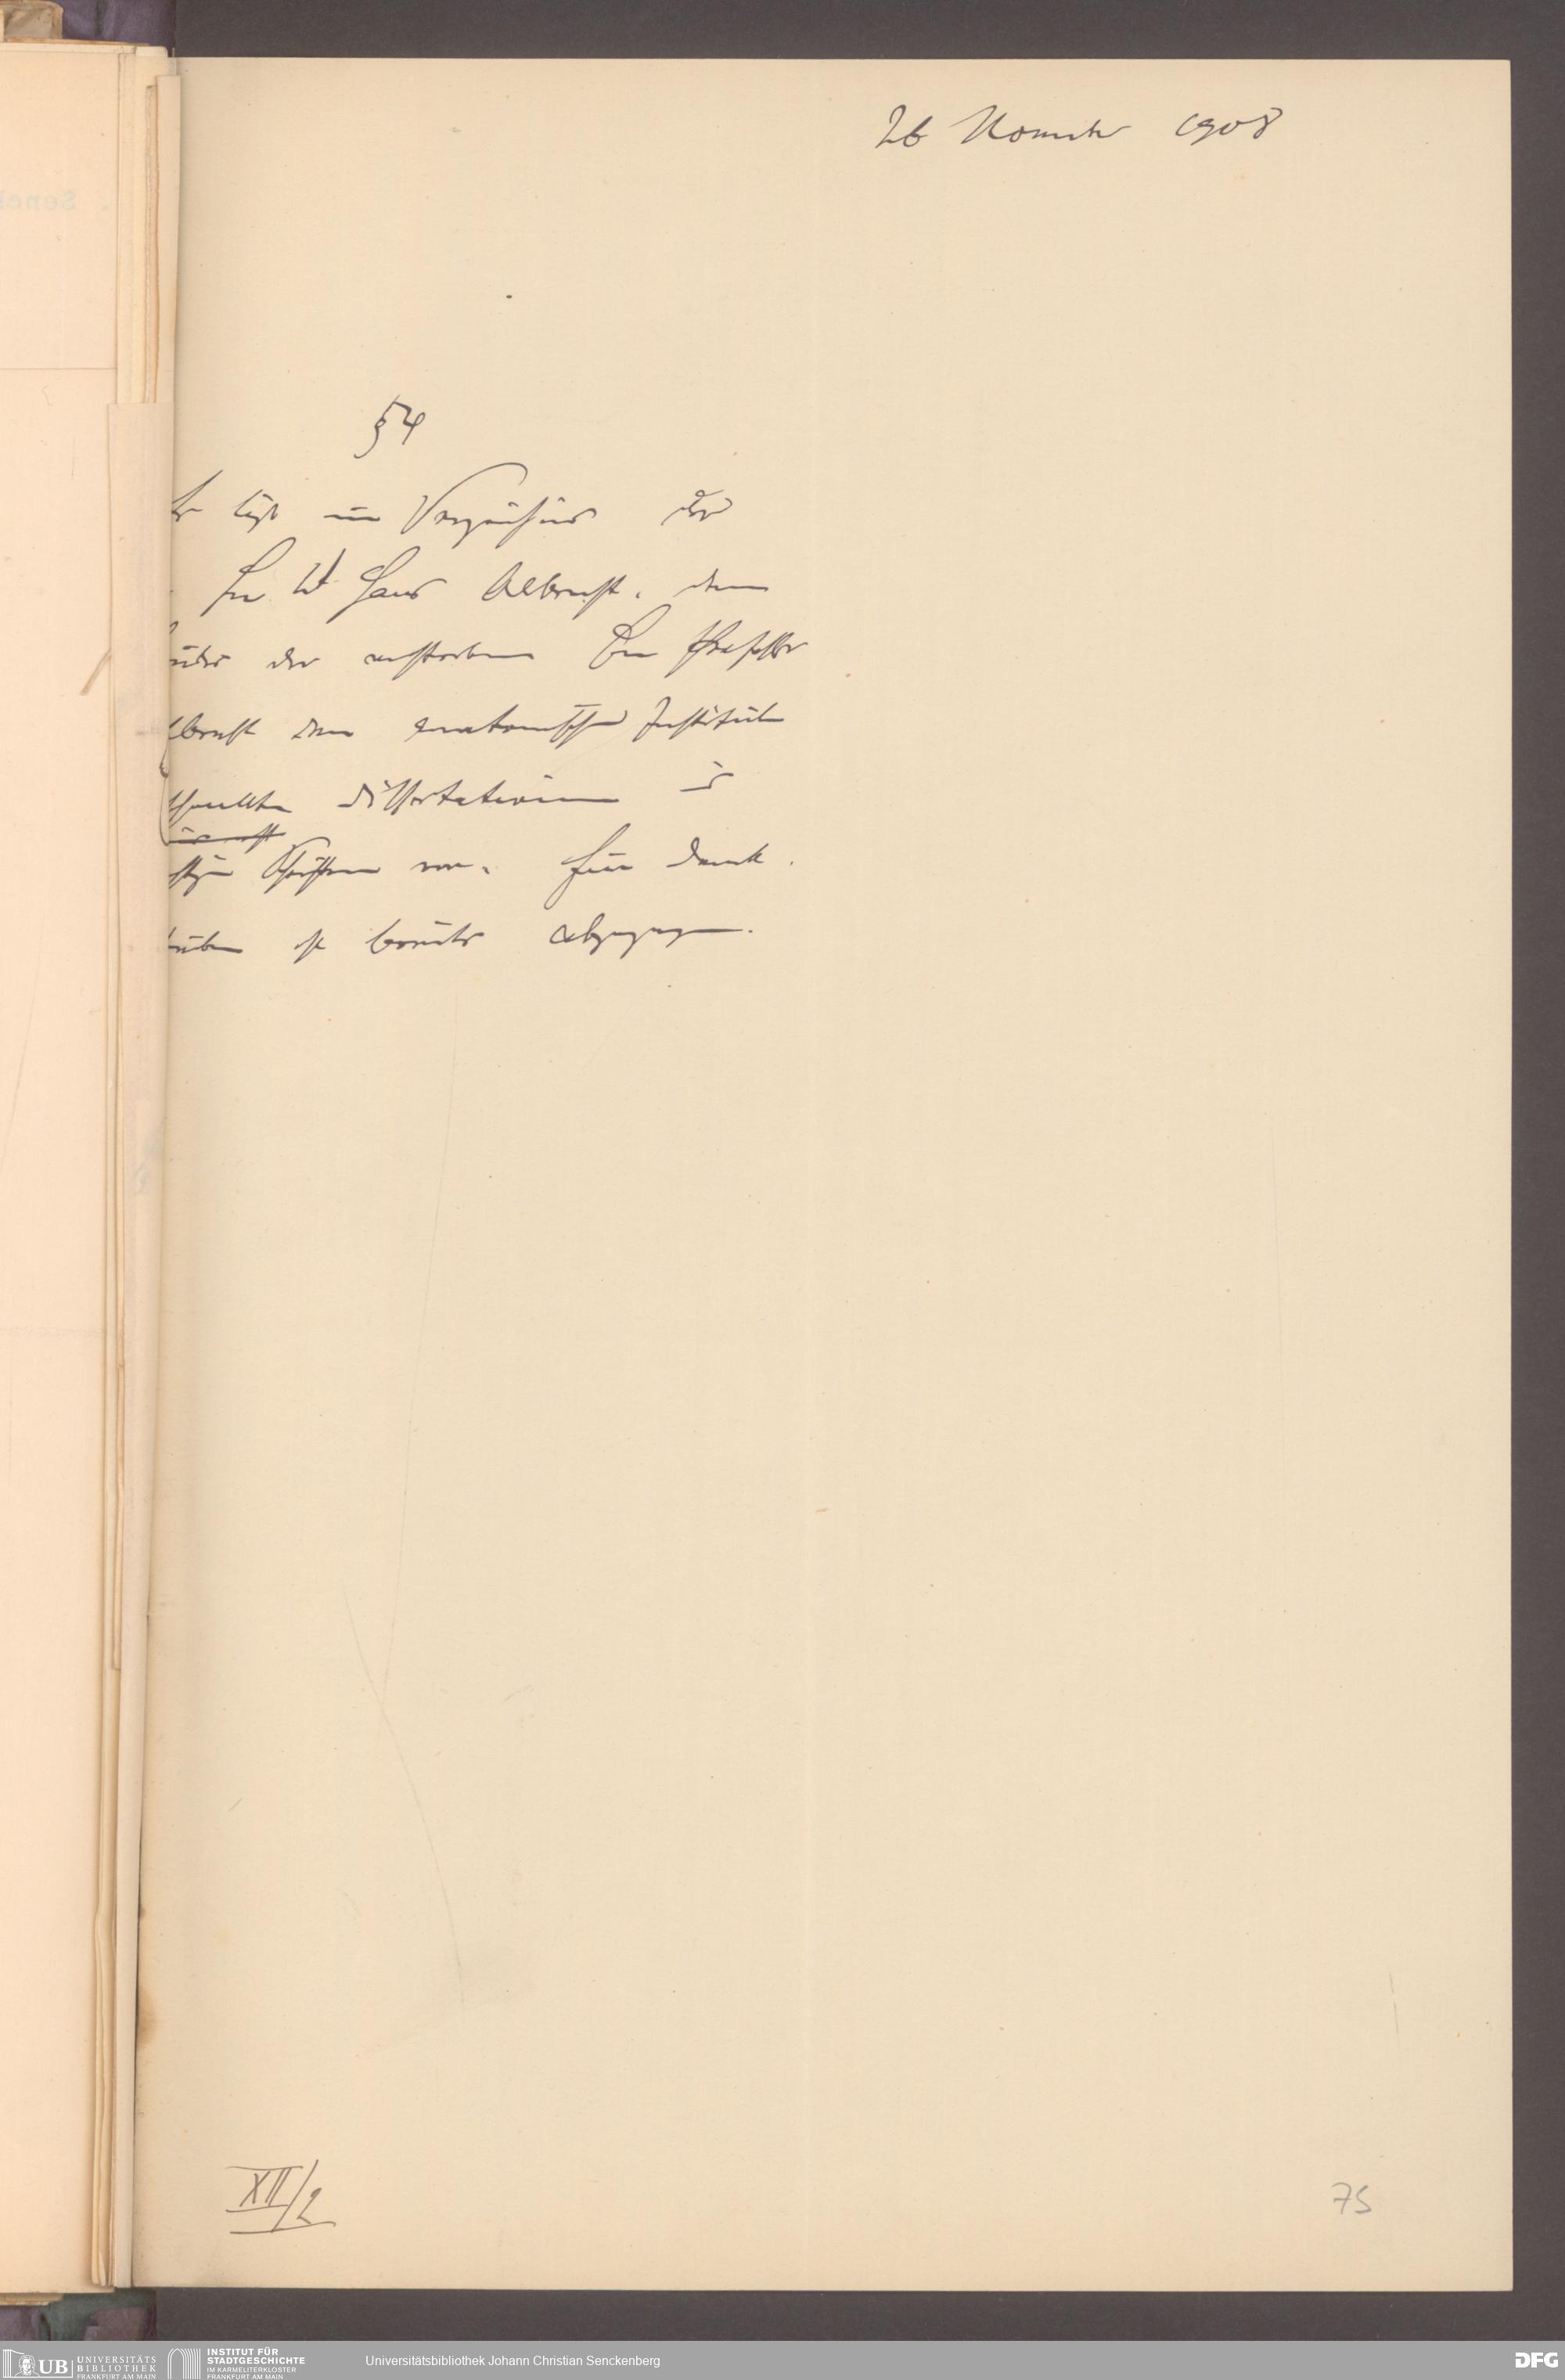 26 November 1908
§4
liegt ein Verzeichnis der
Dr Hans Albrecht, dem
der verstorbenen Herrn Professor
Albrecht dem anatomischen Institute
Dissertationen u
Schriften vor. Ein Dank.
ist bereits abgegangen.
XII/2
75
UB UNIVERSITÄTS
BIBLIOTHEK
FRANKFURT AM MAIN
INSTITUT FÜR
STADTGESCHICHTE
IM KARMELITERKLOSTER
FRANKFURT AM MAIN
Universitätsbibliothek Johann Christian Senckenberg
DFG